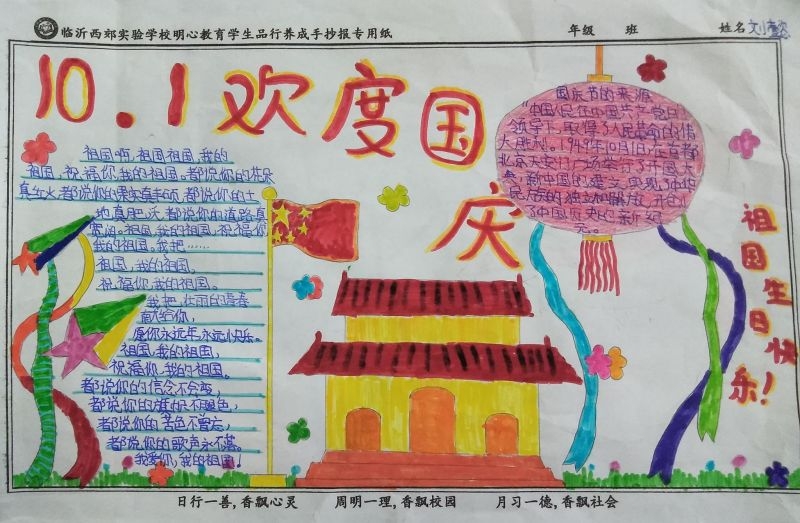 临沂西郊实验学校明心教育学生品行养成手抄报专用纸
年级 班 姓名
10.1欢度国庆
祖国啊,祖国,祖国,我的
祖国,祝福你,我的祖国。都说你的花朵
真红火,都说你的果实真丰硕,都说你的土
地真肥沃,都说你的道路真
宽阔。祖国,我的祖国,祝福你
我的祖国,我把……
祖国,我的祖国,
祝福你,我的祖国。
我把壮丽的青春
献给你,
愿你永远年,永远快乐。
祖国,我的祖国,
祝福你,我的祖国。
都说你的信念不会变,
都说你的旗帜不褪色,
都说你的苦色不曾忘,
都说你的歌声永不落。
我爱你,我的祖国!
国庆节的来源
中国人民在中国共产党的
领导下,取得了人民革命的伟
大胜利。1949年10月1日,在首都
北京天安门广场举行了开国大
典,新中国的建立,实现了中华
民族的独立和解放,开创
了中国历史的新纪
元。
祖国生日快乐!
日行一善,香飘心灵 周明一理,香飘校园 月习一德,香飘社会